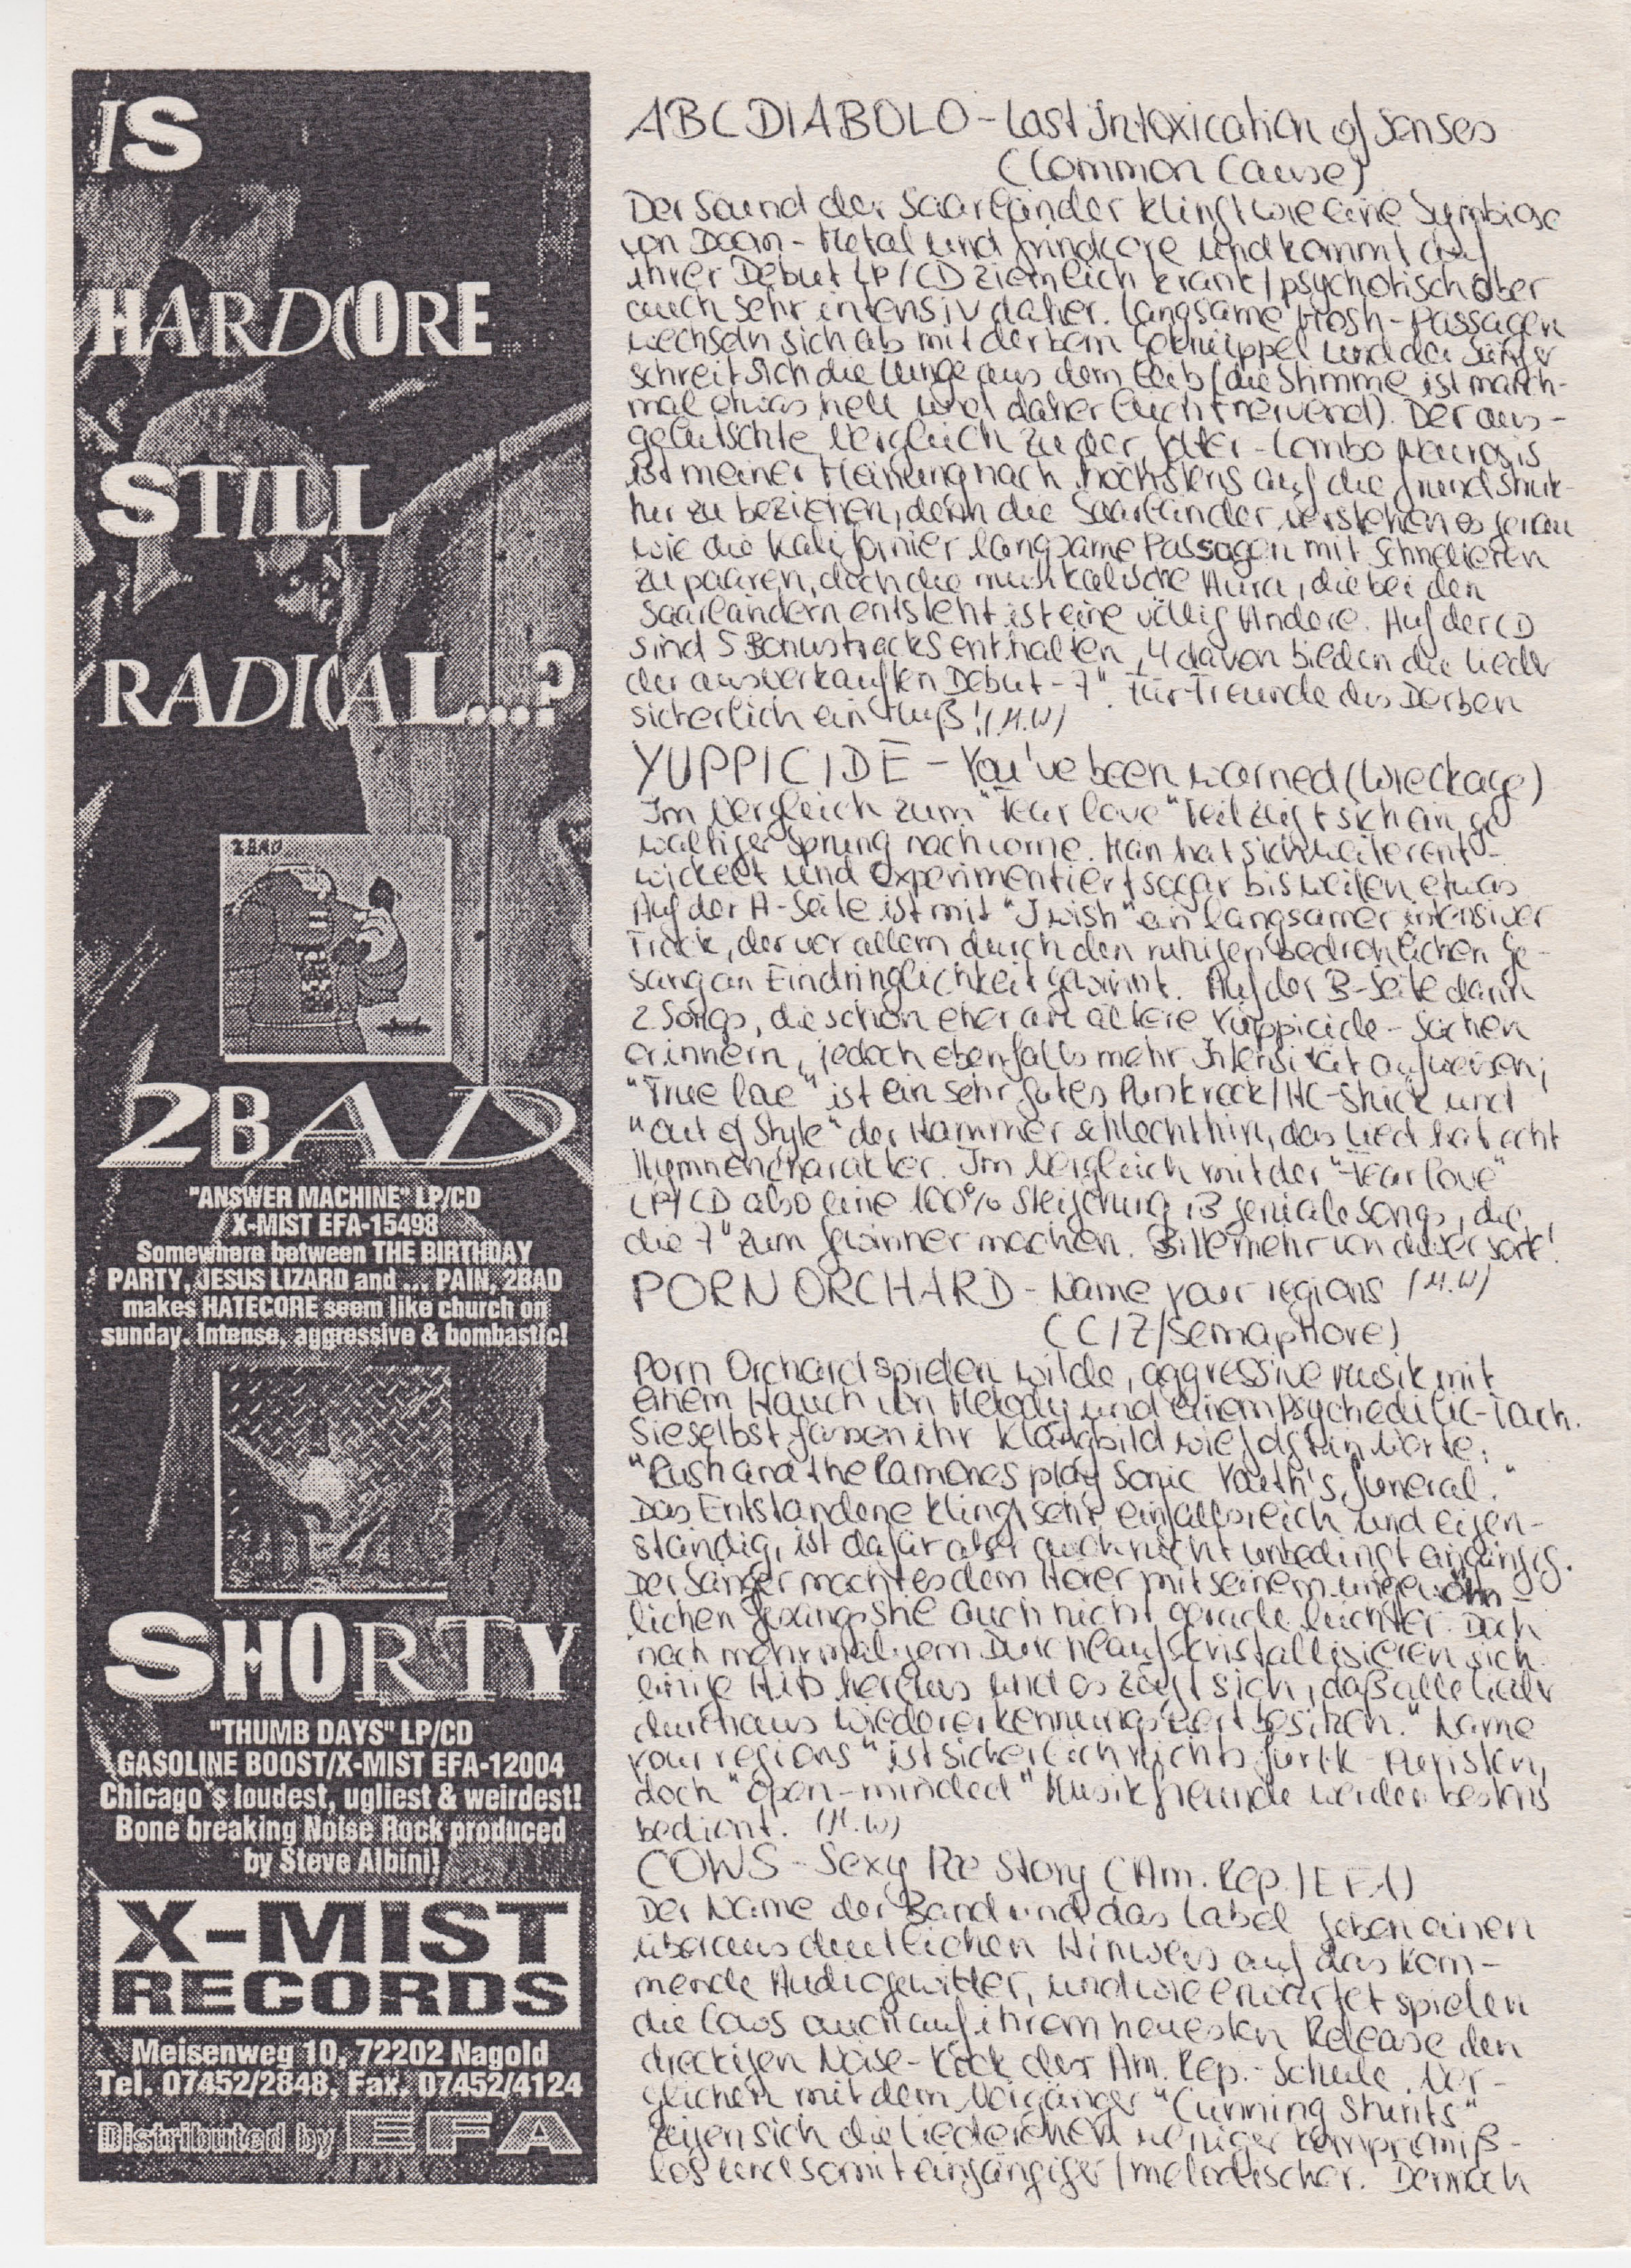 IS
HARDCORE
STILL
RADICAL....?
2BAD
2BAD
"ANSWER MACHINE" LP/CD
X-MIST EFA-15498
Somewhere between THE BIRTHDAY
PARTY, JESUS LIZARD and ... PAIN, 2BAD
makes HATECORE seem like church on
sunday. Intense, aggressive & bombastic!
SHORTY
"THUMB DAYS" LP/CD
GASOLINE BOOST/X-MIST EFA-12004
Chicago's loudest, ugliest & weirdest!
Bone breaking Noise Rock produced
by Steve Albini!
X-MIST
RECORDS
Meisenweg 10, 72202 Nagold
Tel. 07452/2848, Fax. 07452/4124
Distributed by EFA
ABC DIABOLO - Last Intoxication of Senses
(Common Cause)
Der Sound der Saarländer klingt wie eine Symbiose
von Doom-Metal und Grindcore und kommt auf
ihrer Debut LP/CD ziemlich krank/psychotisch aber
auch sehr intensiv daher. Langsame Mosh-Passagen
wechseln sich ab mit derbem Geknüppel und der Sänger
schreit sich die Lunge aus dem Leib (die Stimme ist manch-
mal etwas hell und daher leicht nervend). Der aus-
gelutschte Vergleich zu der Combo Neurosis
ist meiner Meinung nach höchstens auf die Grundstruk-
tur zu beziehen, denn die Saarländer verstehen es genau
wie die Kalifornier langsame Passagen mit schnelleren
zu paaren, doch die musikalische Aura, die bei den
Saarländern entsteht ist eine völlig Andere. Auf der CD
sind 5 Bonustracks enthalten, 4 davon bilden die Lieder
der ausverkauften Debut-7". Für Freunde des Derben
sicherlich ein Muß! (M.W)
YUPPICIDE - You've been warned (Wreckage)
Im Vergleich zum "Fear love" Teil zeigt sich ein ge
waltiger Sprung nach vorne. Man hat sich weiterent-
wickelt und experimentiert sogar bisweilen etwas
Auf der A-Seite ist mit "I wish" ein langsamer intensiver
Track, der vor allem durch den ruhigen bedrohlichen Ge-
sang an Eindringlichkeit gewinnt. Auf der B-Seite dann
2 Songs, die schon eher an ältere Yuppicide-Sachen
erinnern, jedoch ebenfalls mehr Intensität aufweisen;
"True love" ist ein sehr gutes Punkrock/HC-Stück und
"Out of Style" der Hammer schlechthin, das Lied hat echt
Hymnencharakter. Im Vergleich mit der "Fear love"
LP/CD also eine 100% Steigerung, 3 geniale Songs, die
die 7" zum Gewinner machen. Bitte mehr von dieser Sorte!
PORN ORCHARD - Name your regions (M.W)
(C/Z/Semaphore)
Porn Orchard spielen wilde, aggressive Musik mit
einem Hauch von Melody und einem Psychedelic-Touch.
Sie selbst fassen ihr Klangbild wie folgt in Worte:
"Rush and the Ramones play Sonic Youth's funeral."
Das Entstandene klingt sehr einfallsreich und eigen-
ständig, ist dafür aber auch nicht unbedingt eingängig.
Der Sänger macht es dem Hörer mit seinem ungewöhn-
lichen Gesangsstil auch nicht gerade leichter. Doch
nach mehrmaligem Durchlauf kristallisieren sich
einige Hits heraus und es zeigt sich, daß alle Lieder
durchaus Wiedererkennungswert besitzen. "Name
your regions" ist sicherlich nichts für HC-Puristen,
doch "open-minded" Musikfreunde werden bestens
bedient. (M.W)
COWS - Sexy Pee Story (Am. Rep./EFA)
Der Name der Band und das Label geben einen
überaus deutlichen Hinweis auf das kom-
mende Audiogewitter, und wie erwartet spielen
die Cows auch auf ihrem neuesten Release den
dreckigen Noise-Rock der Am. Rep.-Schule. Ver-
glichen mit dem Vorgänger "Cunning Stunts"
zeigen sich die Lieder eher weniger kompromiß-
los und somit eingängiger/melodischer. Dennoch